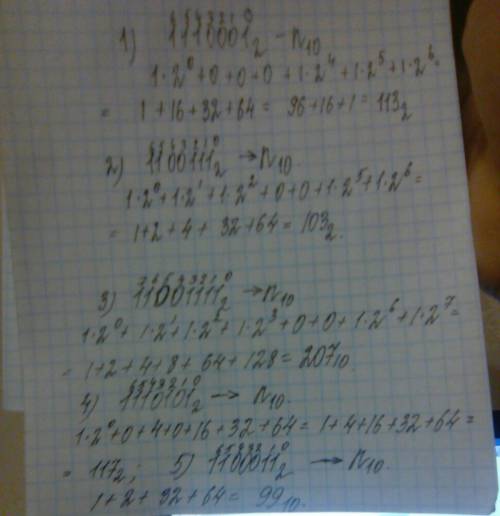 6 5 4 3 2 1 0
1) 1110001₂ → n₁₀
1·2⁰+0+0+0+1·2⁴+1·2⁵+1·2⁶=
= 1+16+32+64= 96+16+1= 113₂
6 5 4 3 2 1 0
2) 1100111₂ → n₁₀.
1·2⁰+1·2¹+1·2²+0+0+1·2⁵+1·2⁶=
= 1+2+4+ 32+64= 103₂.
7 6 5 4 3 2 1 0
3) 11001111₂ → n₁₀
1·2⁰+1·2¹+1·2²+1·2³+0+0+1·2⁶+1·2⁷=
= 1+2+4+8+ 64+128= 207₁₀.
6 5 4 3 2 1 0
4) 1110101₂ → n₁₀.
1·2⁰+0+4+0+16+32+64= 1+4+16+32+64=
= 117₂; 5) 1100011₂ → n₁₀.
1+2+ 32+64= 99₁₀.